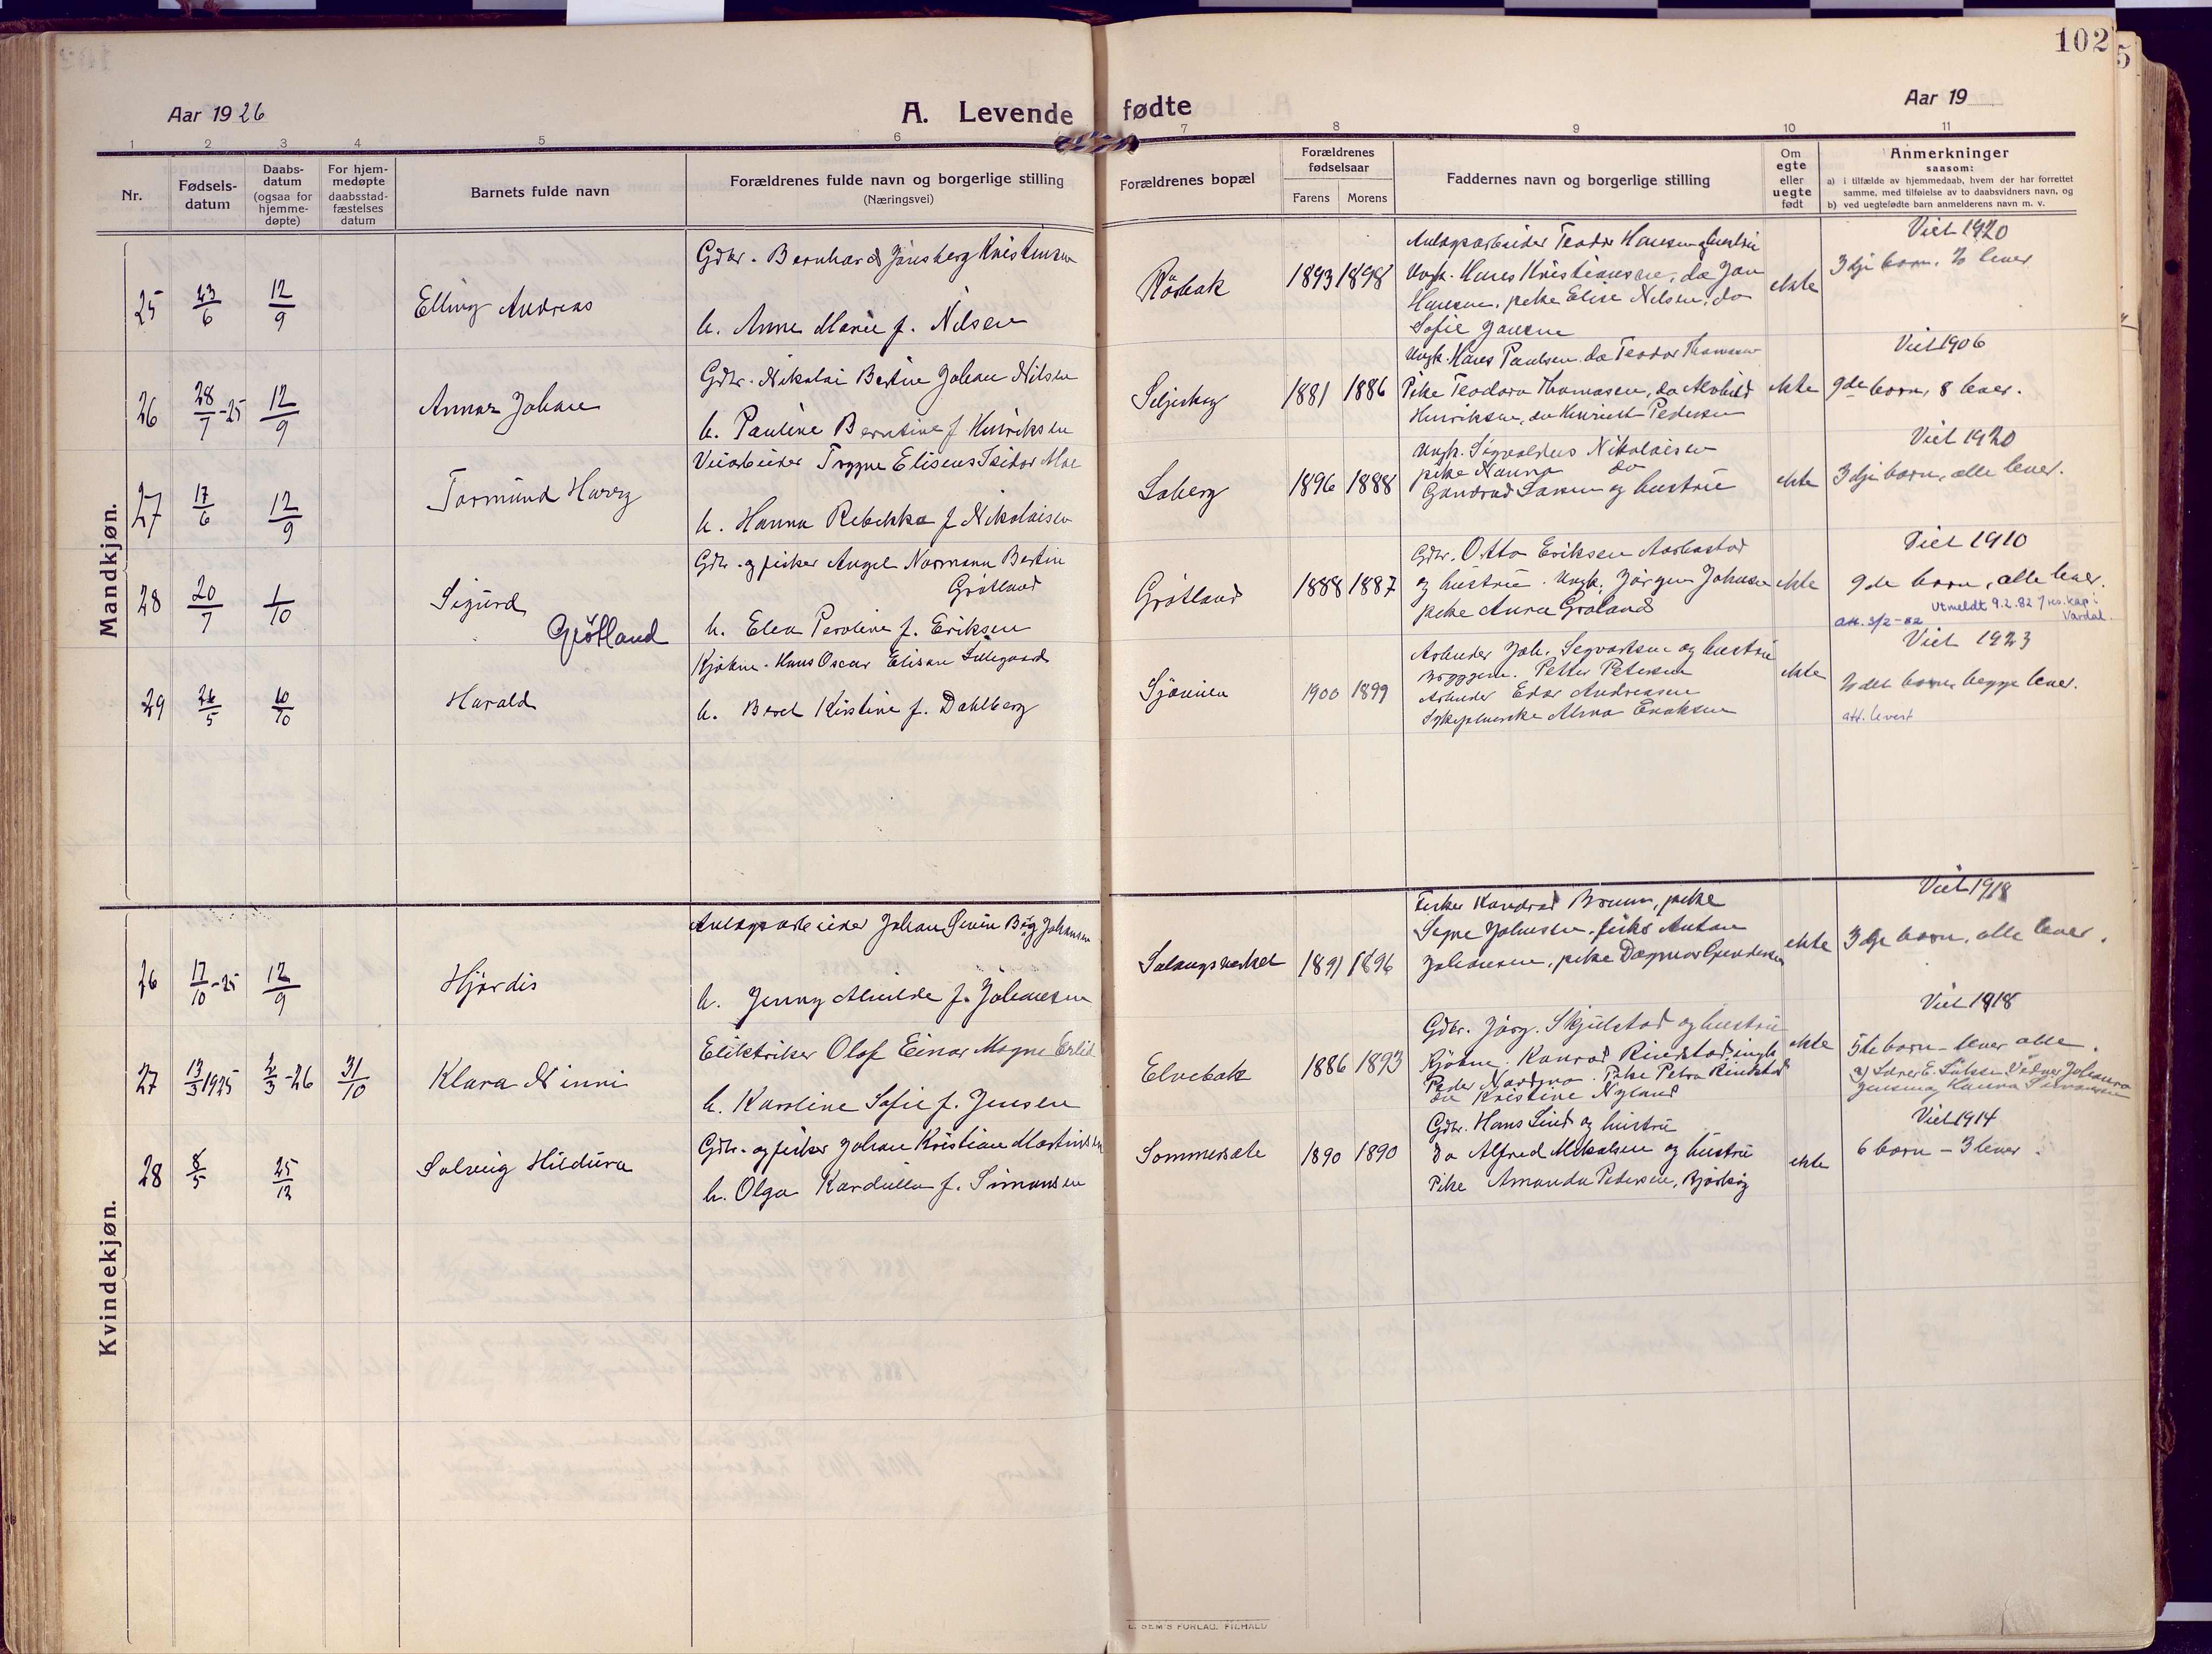 102
5
Aar 1926
A. Levende fødte
Aar 19
1 2 3 4 5 6 7 8 9 10 11
Nr.
Fødsels-
datum
Daabs-
datum
(ogsaa for
hjemme-
døpte)
For hjem-
medøpte
daabsstad-
fæstelses
datum
Barnets fulde navn
Forældrenes fulde navn og borgerlige stilling
(Næringsvei)
Forældrenes bopæl
Forældrenes
fødselsaar
Farens Morens
Faddernes navn og borgerlige stilling
Om
egte
eller
uegte
født
Anmerkninger
saasom:
a) i tilfælde av hjemmedaab, hvem der har forrettet
samme, med tilføielse av to daabsvidners navn, og
b) ved uegtefødte barn anmelderens navn m. v.
Mandkjøn.
25 23/6 12/9 Elling Andreas
Gdbr. Bernhard Jönsberg Kristensen
h. Anna Marie f. Nilsen
1893 1898
Anlægsarbeider Teodor Hansen og hustru
Ungk. Hans Kristiansen, do Jan
Hansen, pike Elise Nilsen, do
Sofie Jansen
ekte
Viet 1920
3dje barn. 2 lever
26 28/7-25 12/9 Annar Johan
Gdbr. Nikolai Bertin Johan Nilsen
h. Pauline Berntine f Henriksen
Seljeskog
1881 1886
Ungk. Hans Paulsen do Teodor Thomassen
Pike Teodora Thomasen, do
Henriksen, do Henriet Pedersen
ekte
Viet 1906
9de barn, 8 lever.
27 17/6 12/9 Tormund Harry
Veiarbeider Trygve Eliseus Isidor Moe
h. Hanna Rebekka f Nikolaisen
Løberg
1896 1888
Ungk. Sigvaldus Nikolaisen
pike Nanna do
Larsen og hustru
ekte
Viet 1920
3dje barn, alle lever.
28 20/7 1/10 Sigurd
Grötland
Gdbr. og fisker Angel Normann Bertin
Grötland
h. Elea Peroline f. Eriksen
Grötland
1888 1887
Gdbr. Otto Eriksen Aarbostad
og hustru. Ungk. Jörgen Johnsen
pike Anna Grøland
ekte
Viet 1910
9de barn, alle lever.
Utmeldt 9.2.82 7 res. kap i
att. 3/2-82 Vardal.
29 26/5 10/10 Harald
Kjøbm. Hans Oscar Elisan Lillegaard
h. Beret Kirstine f. Dahlberg
Sjöveien
1900 1899
Arbeider Joh. Segvartsen og hustru
Byggm. Petter Petersen
Arbeider Edor Andreasen
Sykepleierske Alma Enoksen
ekte
Viet 1923
2det barn, begge lever.
att. levert
Kvindekjøn.
26 17/10-25 12/9 Hjördis
Anlægsarbeider Johan Severin Berg Johansen
h. Jenny Alvilde f. Johansen
Salangsverket
1891 1896
Fisker Kondrad Bruun, pike
Signe Johnsen. fisker Anton
Johansen, pike Dagmar Gundersen
ekte
Viet 1918
3dje barn, alle lever.
27 13/3 1925 2/3-26 31/10 Klara Ninni
Elektriker Olaf Einar Magne
h. Karoline Sofie f. Jensen
Elvebak
1886 1893
Gdbr. Jörg. Skjelstad og hustru
Kjøbm. Konrad Rindstad ungk.
Peder Nordmo. Pike Petra Rindstad
do Kristine Nyland
ekte
Viet 1918
5te barn - lever alle.
a) Lærer E. Vidner Johanna
Jensen og Hanna
28 8/5 25/12 Solveig Hildura
Gdbr. og fisker Johan Kristian Martinsen
h. Olga Kardilla f. Simonsen
Sommersæte
1890 1890
Gdbr. Hans Lind og hustru
do Alfred Mikalsen og hustru
Pike Amanda Pedersen,
ekte
Viet 1914
6 barn - 3 lever.
E. SEM'S FORLAG, FR.HALD